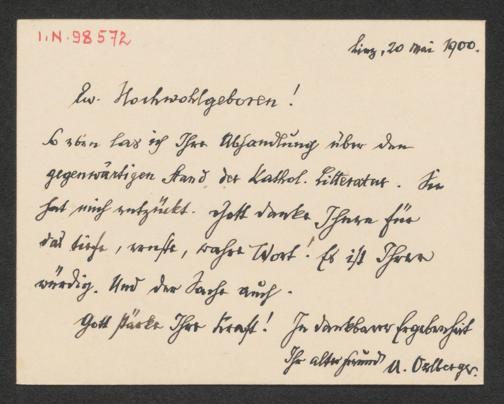 I.N. 98572
Linz, 20 Mai 1900.
Ew. Hochwohlgeboren!
So eben las ich Ihre Abhandlung über den
gegenwärtigen Stand der Kathol. Litteratur. Sie
hat mich entzückt. Gott danke Ihnen für
das tiefe, ernste, wahre Wort! Es ist Ihrer
würdig. Und der Sache auch.
Gott stärke Ihre Kraft! In dankbarer Ergebenheit
Ihr alter Freund A.